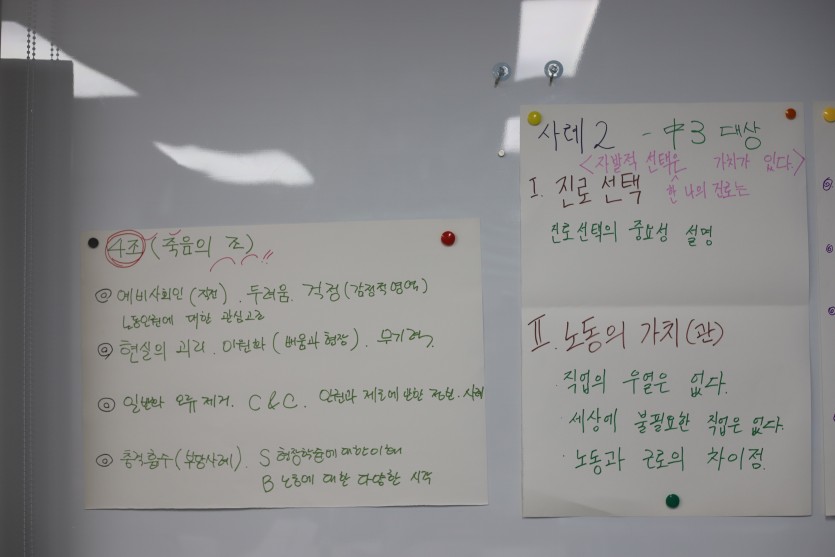 4조 (죽음의 조)!!
◎ 예비사회인 (직전). 두려움. 걱정 (감정적영역)
↳노동인권에 대한 관심고조
◎ 현실의 괴리. 이원화 (배움과 현장). 무기력
◎ 일반화 오류 제거. C&C. 인권과 제도에 대한 정보. 사례
◎ 충격흡수 (부당사례). S 현장학습에 대한 이해
B 노동에 대한 다양한 시각
사례 2 - 中3 대상
<자발적 선택을 가치가 있다.>
한 나의 진로는
I. 진로 선택
진로선택의 중요성 설명
II. 노동의 가치(관)
· 직업의 우열은 없다.
· 세상에 불필요한 직업은 없다.
· 노동과 근로의 차이점.